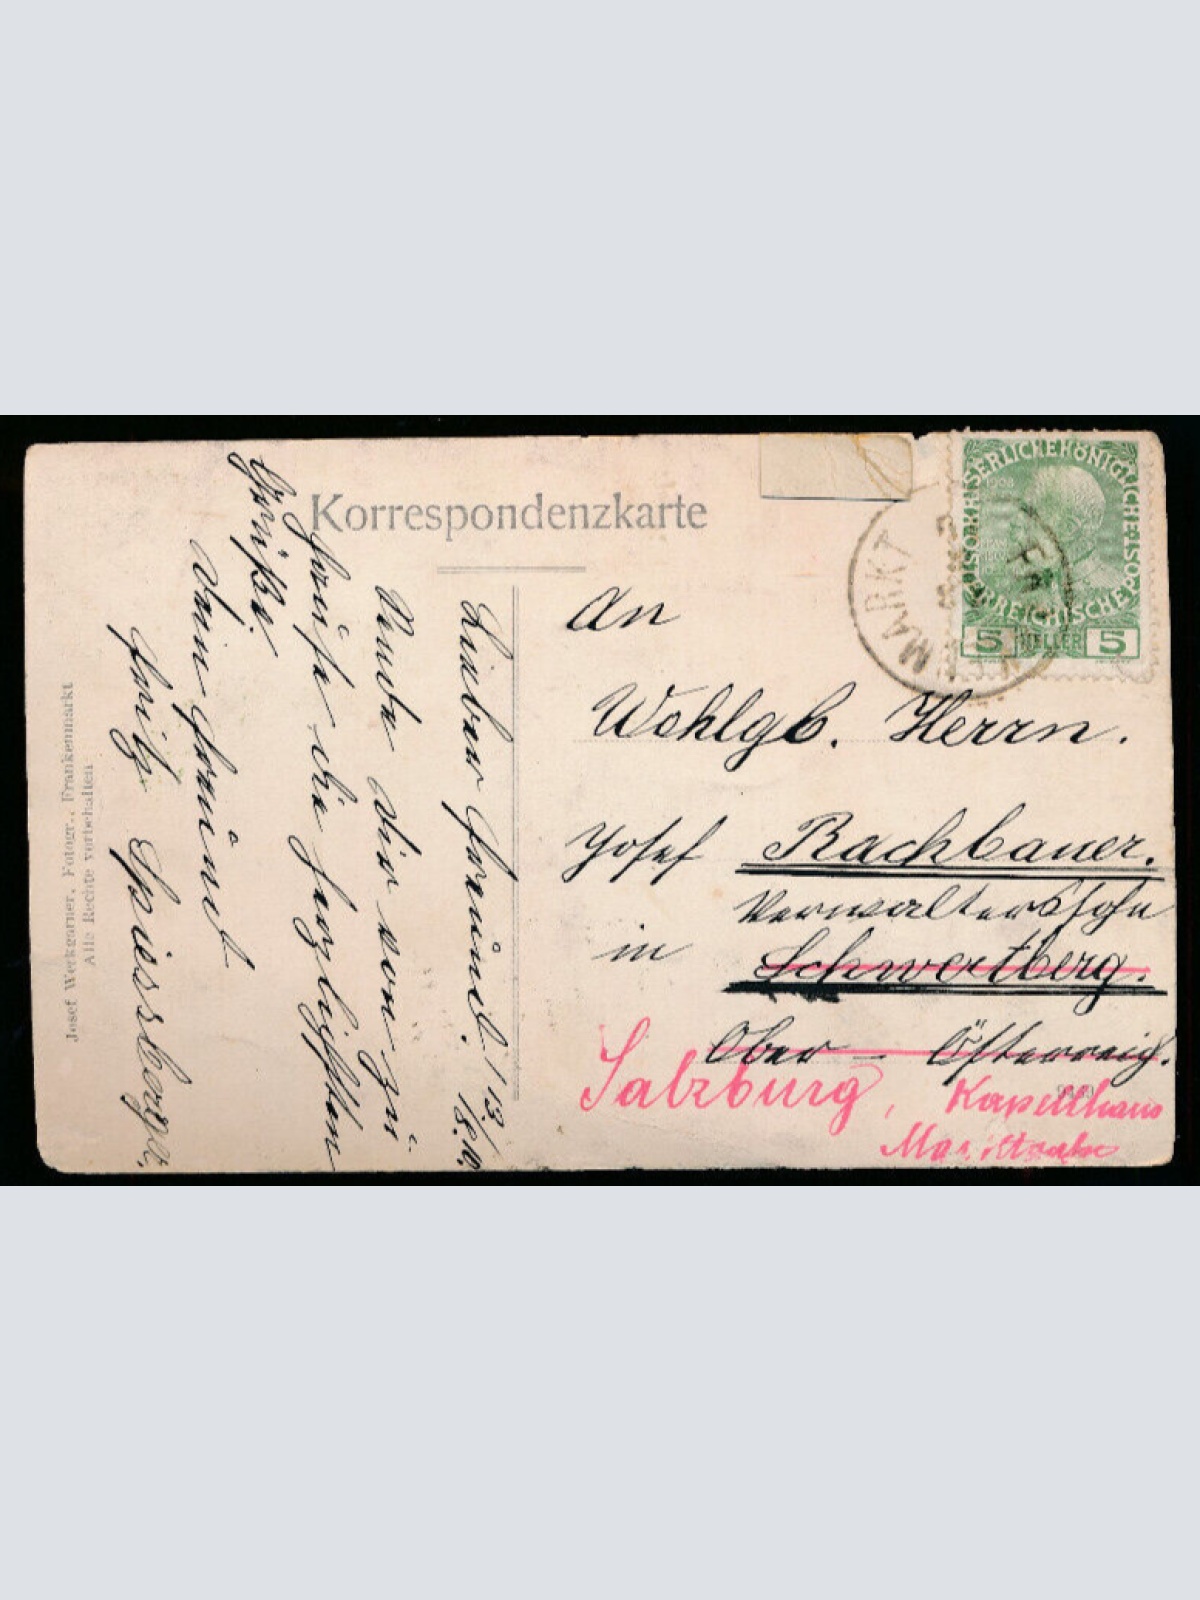 Korrespondenzkarte
KAISERLICHEKÖNIGLICHE ÖSTERREICHISCHE POST
1908
5 HELLER 5
MARKT
An
Wohlgb. Herrn.
Josef Rachbauer.
Verwalterssohn
in Schwertberg.
Ober-Österreich.
Salzburg, Kapellhaus
Lieber Freund! 13/8.10.
Sende Dir von zu
Hause die herzlichsten
Grüße
Dein Freund
Fritz Spiessberger.
Josef Werkgarner, Fotogr., Frankenmarkt
Alle Rechte vorbehalten